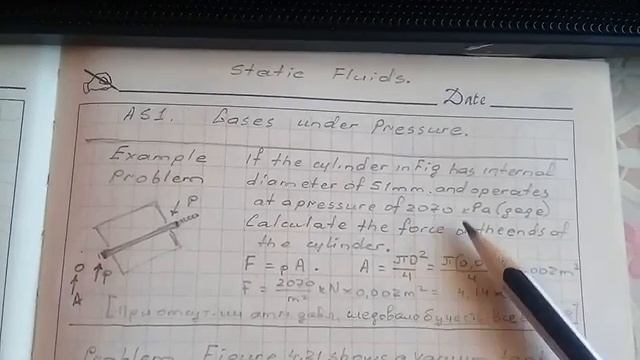 Static Fluids.
Date
AS1. Gases under Pressure.
Example
Problem
If the cylinder in Fig has internal
diameter of 51mm. and operates
at a pressure of 2070 kPa (gage)
Calculate the force on the ends of
the cylinder.
P
O
P
A
F = pA. A = πD²/4 = π(0,0 /4 0.002m²
F = 2070/m² kN x 0,002m² = 4,14
Problem Figure 4.21 shows a vacuum